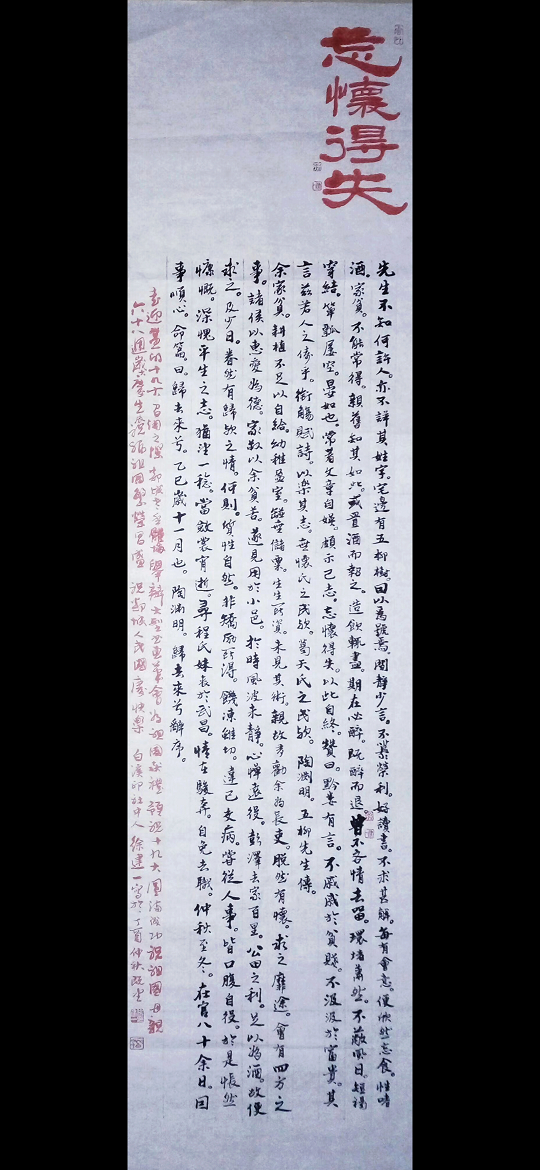 忘懷得失
先生不知何許人。亦不詳其姓字。宅邊有五柳樹。因以為號焉。閑靜少言。不慕榮利。好讀書。不求甚解。每有會意。便欣然忘食。性嗜
酒。家貧。不能常得。親舊知其如此。或置酒而招之。造飲輒盡。期在必醉。既醉而退。曾不吝情去留。環堵蕭然。不蔽風日。短褐
穿結。簞瓢屢空。晏如也。常著文章自娛。頗示己志。忘懷得失。以此自終。贊曰。黔婁有言。不戚戚於貧賤。不汲汲於富貴。其
言茲若人之儔乎。銜觴賦詩。以樂其志。無懷氏之民歟。葛天氏之民歟。陶淵明。五柳先生傳。
余家貧。耕植不足以自給。幼稚盈室。缾無儲粟。生生所資。未見其術。親故多勸余為長吏。脫然有懷。求之靡途。會有四方之
事。諸侯以惠愛為德。家叔以余貧苦。遂見用於小邑。於時風波未靜。心憚遠役。彭澤去家百里。公田之利。足以為酒。故便
求之。及少日。眷然有歸歟之情。何則。質性自然。非矯厲所得。饑凍雖切。違己交病。嘗從人事。皆口腹自役。於是悵然
慷慨。深愧平生之志。猶望一稔。當斂裳宵逝。尋程氏妹喪於武昌。情在駿奔。自免去職。仲秋至冬。在官八十余日。因
事順心。命篇曰。歸去來兮。乙巳歲十一月也。陶淵明。歸去來兮辭序。
喜迎盛的十九大召開之際
六十八週歲華生祖國繁榮昌盛 祝人民國慶快樂 白溪印社中人徐建一寫於丁酉仲秋